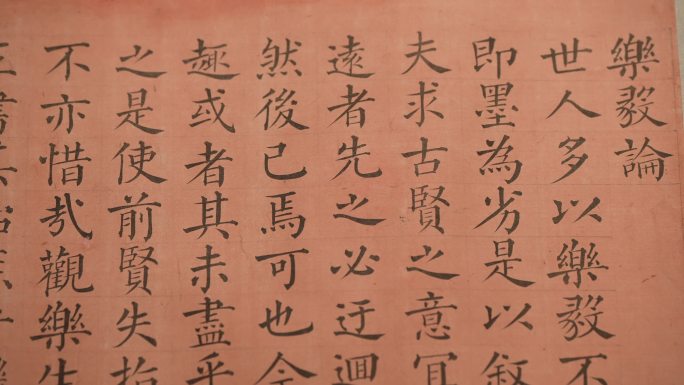 樂毅論
世人多以樂毅不
即墨為劣是以敘
夫求古賢之意宜
遠者先之必迂迴
然後已焉可也今
趣或者其未盡乎
之是使前賢失指
不亦惜哉觀樂生
王書其